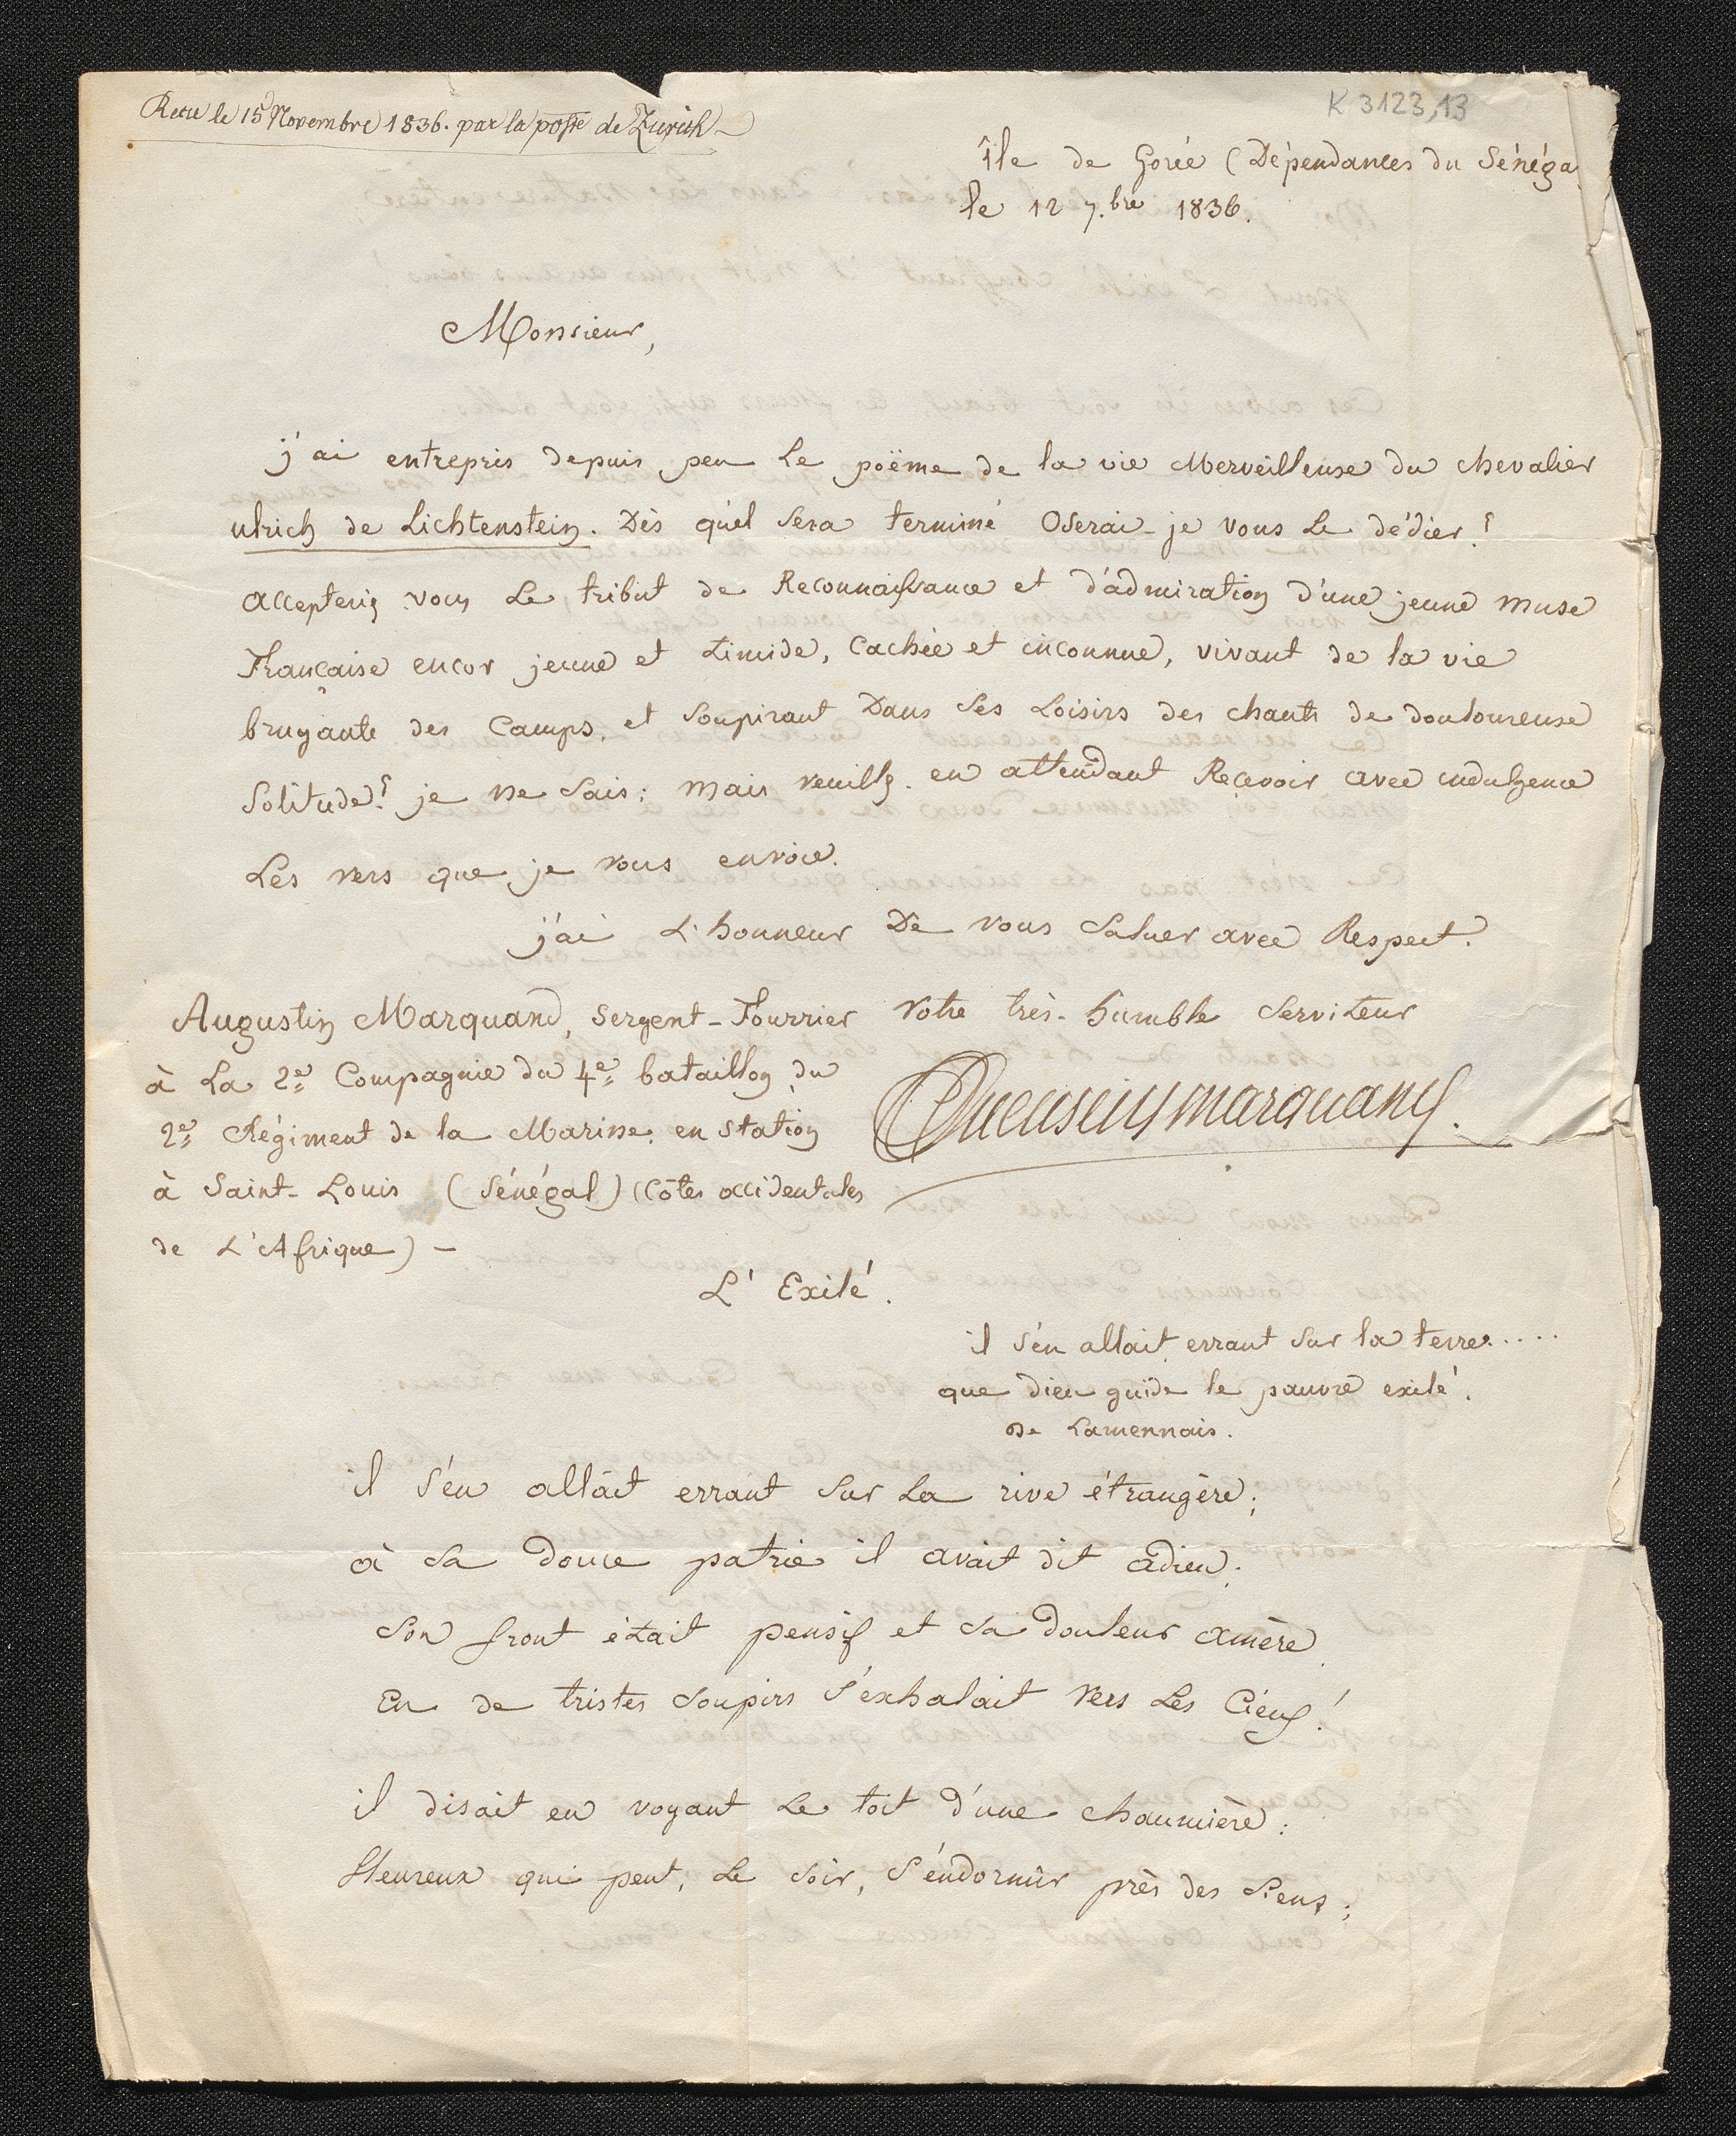 Recu le 15 Novembre 1836. par la poste de Zurich
K 3123,13
Île de Gorée (Dépendances du Sénéga
le 12 7.bre 1836.
Monsieur,
j'ai entrepris depuis peu Le poëme de la vie Merveilleuse du chevalier
ulrich de Lichtenstein. Dès qu'el sera terminé Oserai-je vous Le dédier?
accepteriez vous Le tribut de Reconnaissance et d'admiration d'une jeune muse
Française encor jeune et timide, Cachée et inconnue, vivant de la vie
bruyante des Camps, et soupirant Dans ses Loisirs des chants de douloureuse
Solitude? je ne sais; mais veuillez en attendant Recevoir avec indulgence
Les vers que je vous envoie.
j'ai L'honneur De vous saluer avec Respect.
Votre très-humble serviteur
Augustin Marquand, Sergent-Fourrier
à La 2e Compagnie du 4e bataillon du
2e Régiment de la Marine en station
à Saint-Louis (Sénégal) (Côtes occidentales
de L'Afrique) —
marquand.
L'Exilé.
il s'en allait errant sur la terre....
que dieu guide le pauvre exilé.
De Lamennais.
il s'en allait errant sur La rive étrangère;
à sa douce patrie il avait dit adieu;
Son front était pensif et sa douleur amère
En de tristes soupirs s'exhalait vers Les Cieux!
il disait en voyant Le toit d'une chaumière:
Heureux qui peut, Le soir, s'endormir près des siens;